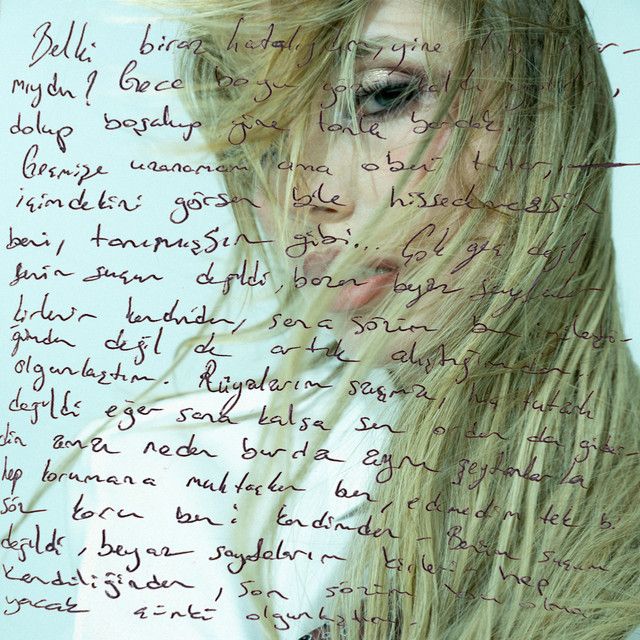 Belki biraz hatalıyım, yine
mıydın? Gece boyu
dolup boşalıp yine
Geçmişe uzanamam ama
içimdekini görsen bile hissedmezsin
beni, tanımışsın gibi... Çok geç değil
senin suçun değildi, bazen beyaz sayfalar
kirlenir kendinden, sana sözüm
değil de artık alıştığımdan
olgunlaştım. Rüyalarım saçma,
değildi eğer sana kalsa sen ordan da
ama neden burda aynı şeytanlarla
hep korumana muhtaçken ben, edmedim tek
söz koru beni kendimden - Benim suçum
değildi, beyaz sayfaların kirleri hep
kendiliğinden, son sözüm
yacak çünkü olgunlaştım.